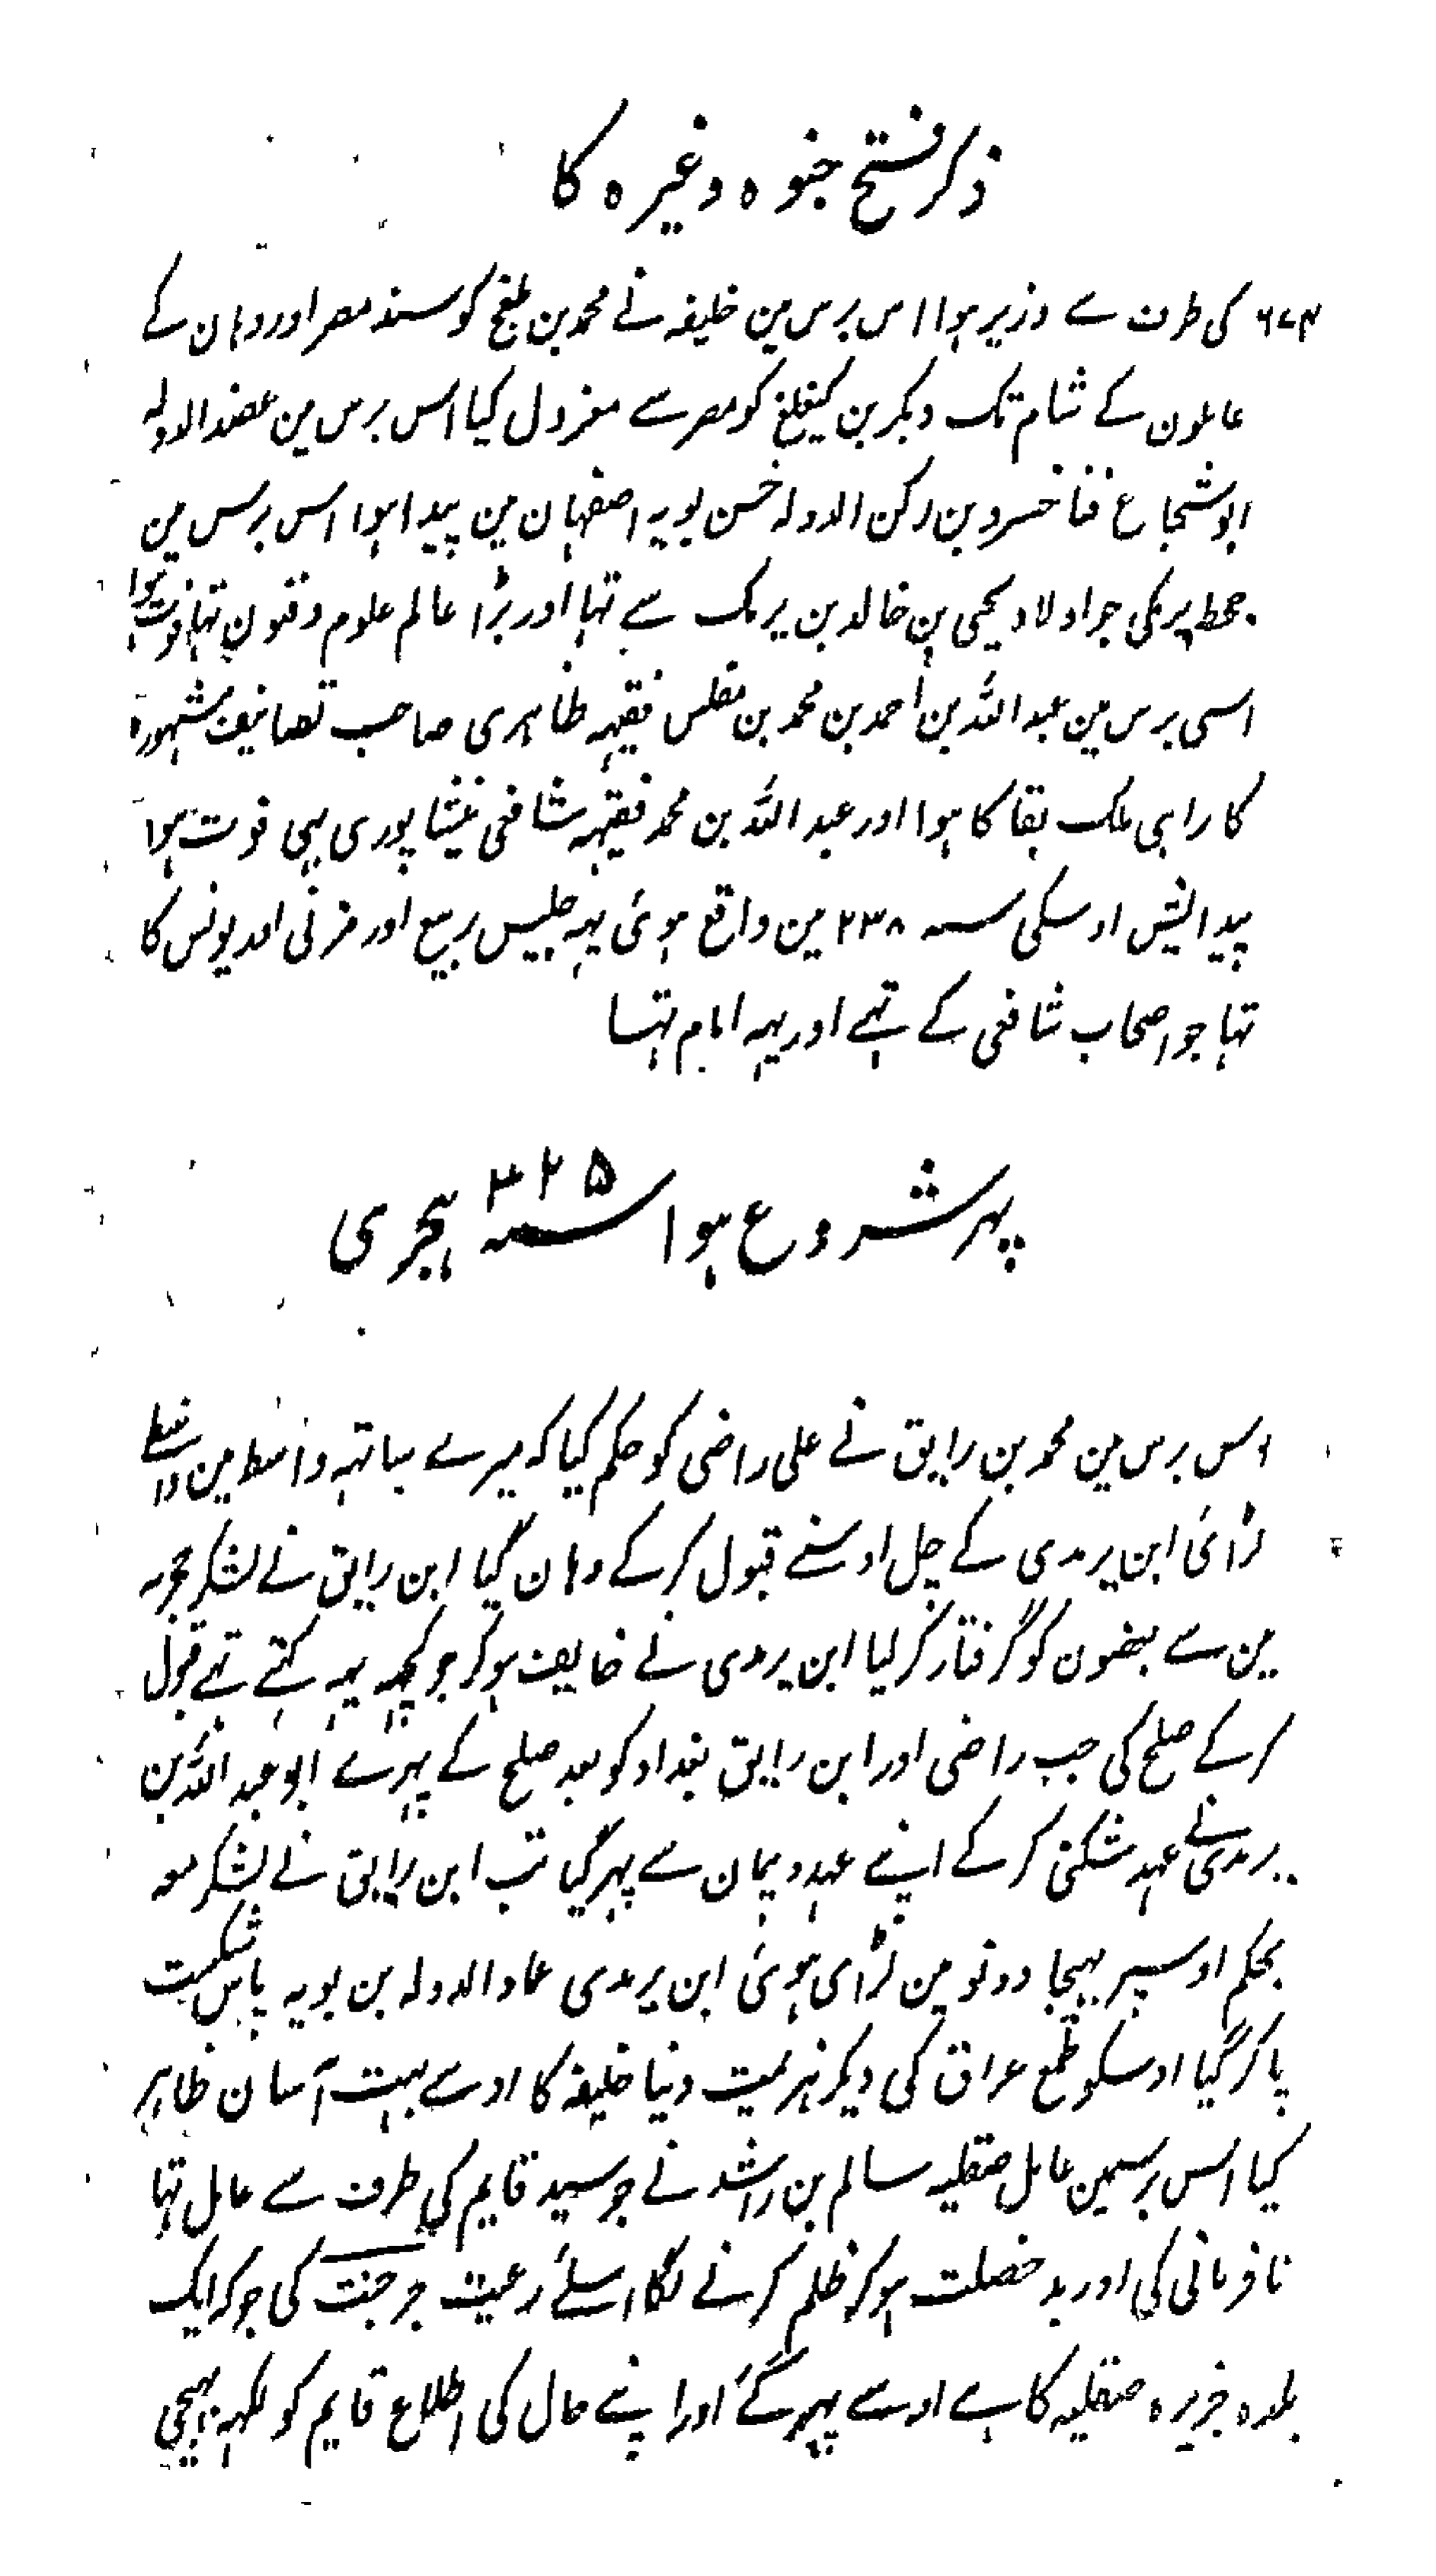 ذکر فتح جنوہ وغیرہ کا
۶۷۴ کی طرف سے وزیر ہوا اس برس مین خلیفہ نے محمد بن طغج کو سند مصر اور وہان کے
عاملون کے شام تک دیکر بن کیغلغ کو مصر سے معزول کیا اس برس مین عضد الدولہ
ابو شجاع فناخسرو بن رکن الدولہ حسن بویہ اصفہان مین پیدا ہوا اس برس مین
جحظہ برمکی جو اولاد یحیی بن خالد بن برمک سے تہا اور بڑا عالم علوم وفنون تہا فوت ہوا
اسی برس مین عبد اللہ بن احمد بن محمد بن مغلس فقیہہ ظاہری صاحب تصانیف مشہورہ
کا راہی ملک بقا کا ہوا اور عبد اللہ بن محمد فقیہہ شافعی نیشاپوری بہی فوت ہوا
پیدایش اوسکی سنہ ۲۳۸ مین واقع ہوئی یہہ جلیس ربیع اور مزنی اور یونس کا
تہا جو اصحاب شافعی کے تہے اور یہہ امام تہا
پہر شروع ہوا سنہ ۳۲۵ ہجری
اس برس مین محمد بن رایق نے علی راضی کو حکم کیا کہ میرے ساتہہ واسط مین واسطے
لڑائی ابن بریدی کے چل اوسنے قبول کر کے وہان گیا ابن رایق نے لشکر حجریہ
مین سے بعضون کو گرفتار کر لیا ابن بریدی نے خایف ہو کر جو کچہہ یہہ کہتے تہے قبول
کر کے صلح کی جب راضی اور ابن رایق بغداد کو بعد صلح کے پہرے ابو عبد اللہ بن
بریدی نے عہد شکنی کر کے اپنے عہد و پیمان سے پہر گیا تب ابن رایق نے لشکر معہ
بحکم اوسپر بہیجا دونو مین لڑای ہوئی ابن بریدی عماد الدولہ بن بویہ پاس شکست
پا کر گیا اوسکو طمع عراق کی دیکر ہزیمت دینا خلیفہ کا اوسے بہت آسان ظاہر
کیا اس برسمین عامل صقلیہ سالم بن راشد نے جو سید قایم کی طرف سے عامل تہا
نافرمانی کی اور بد خصلت ہو کر ظلم کرنے لگا اسلئے رعیت جرجنت کی جو کہ ایک
بلدہ جزیرہ صقلیہ کا ہے اوسے پہر گئے اور اپنے حال کی اطلاع قایم کو لکہہ بہیجی